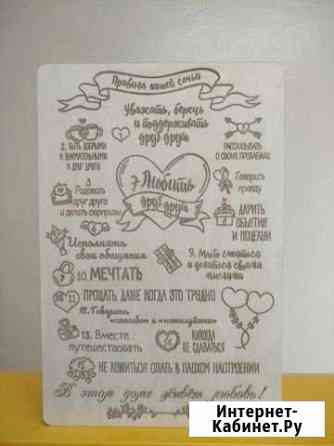 Правила нашей семьи
Уважать, беречь
и поддерживать
друг друга
1
2. БЫТЬ ДОБРЫМИ
И ВНИМАТЕЛЬНЫМИ
К ДРУГ ДРУГУ
РАССКАЗЫВАТЬ
О СВОИХ ПРОБЛЕМАХ
3
Радовать
друг друга
и делать сюрпризы
7 Любить
друг друга
Говорить
правду
ДАРИТЬ
ОБЪЯТИЯ
И ПОЦЕЛУИ
Исполнять
свои обещания
9.
10. МЕЧТАТЬ
11 ПРОЩАТЬ, ДАЖЕ КОГДА ЭТО ТРУДНО
12. Говорить
«спасибо» и «пожалуйста»
13. Вместе
путешествовать
НИКОГДА
НЕ СДАВАТЬСЯ
15 НЕ ЛОЖИТЬСЯ СПАТЬ В ПЛОХОМ НАСТРОЕНИИ
В этом доме живёт любовь!
Интернет-
Кабинет.Ру